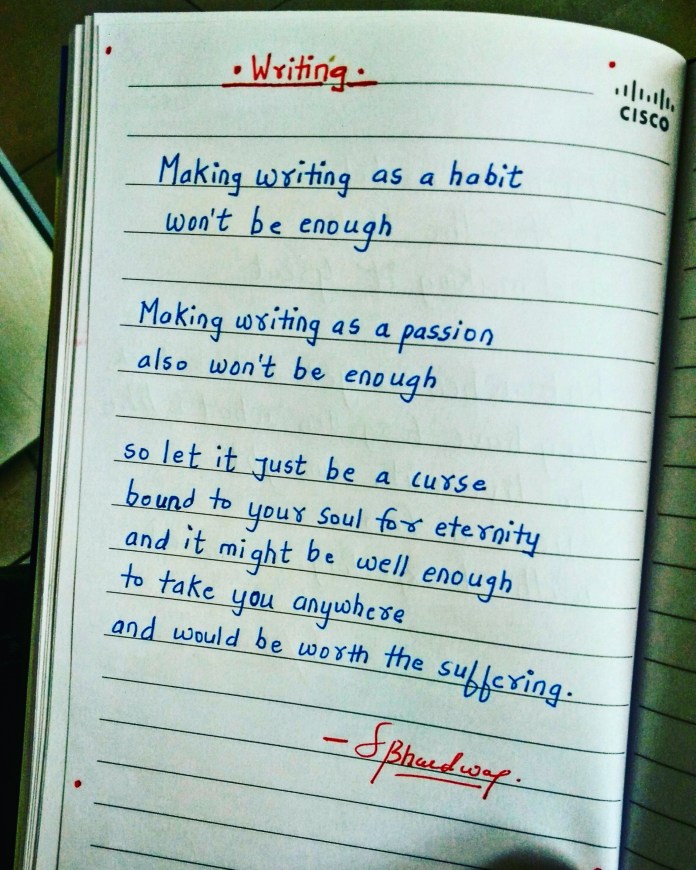 • Writing •
CISCO
Making writing as a habit
won't be enough
Making writing as a passion
also won't be enough
so let it just be a curse
bound to your soul for eternity
and it might be well enough
to take you anywhere
and would be worth the suffering.
- SBhardwaj.